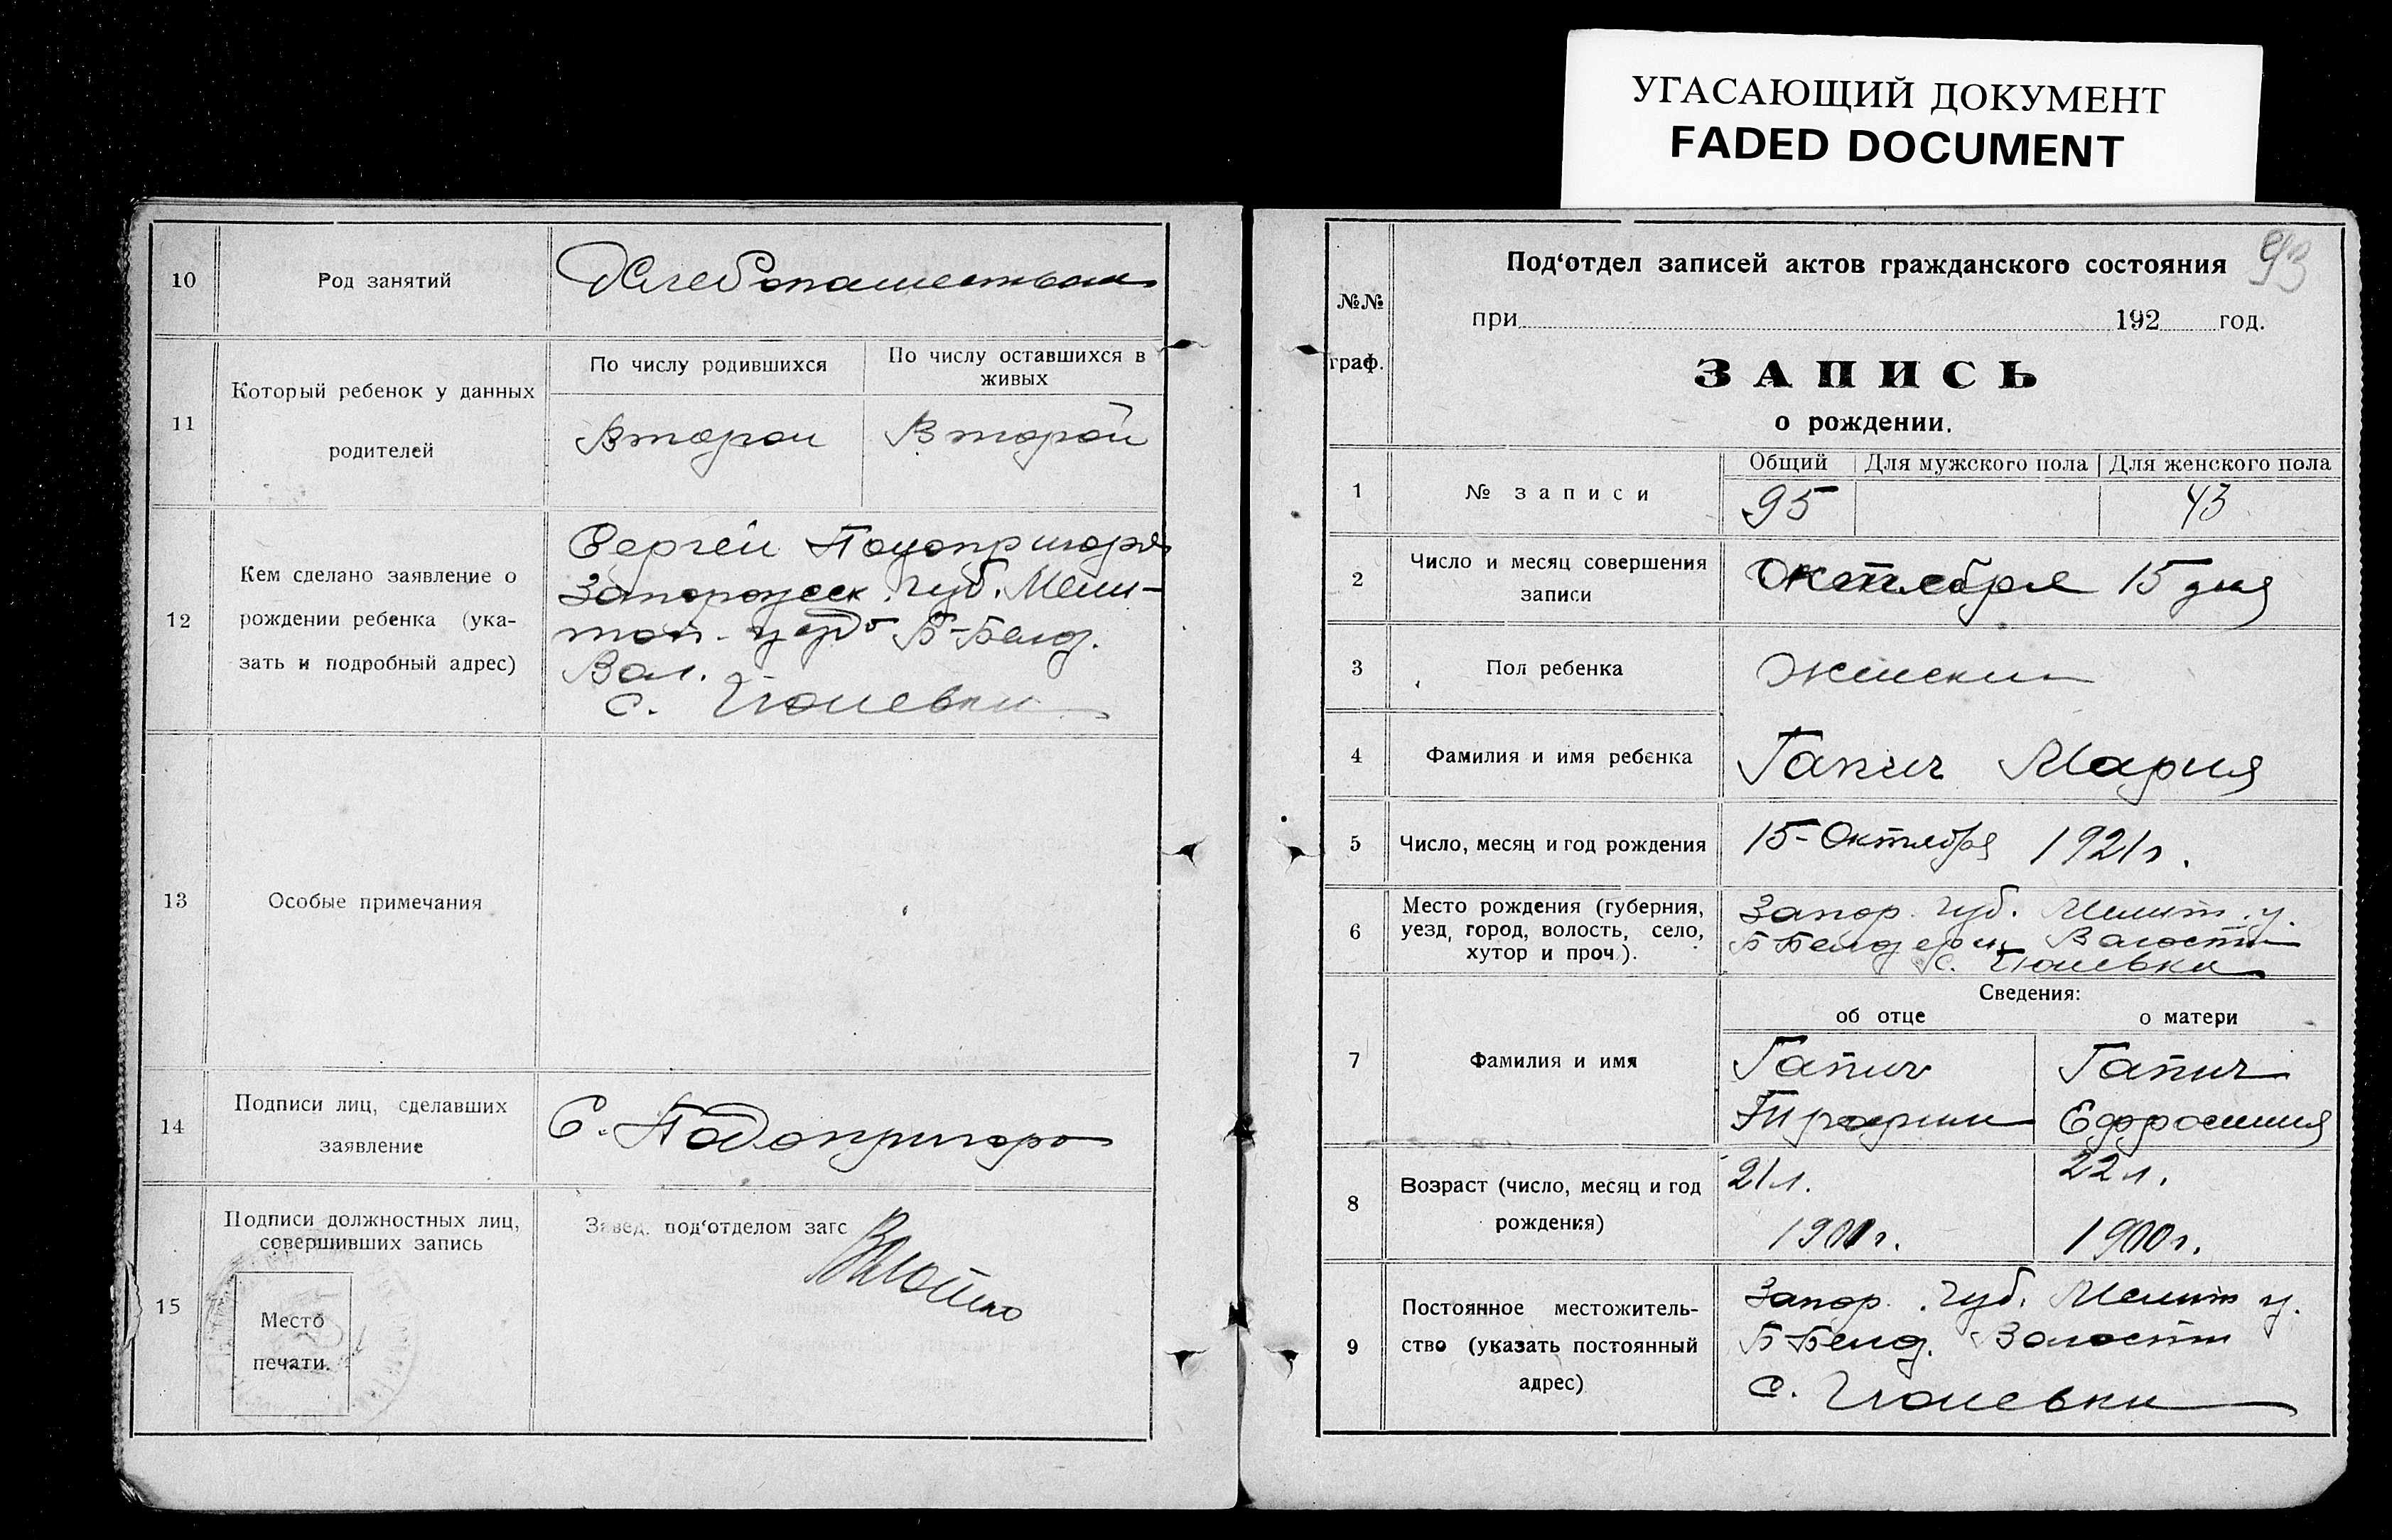 УГАСАЮЩИЙ ДОКУМЕНТ
FADED DOCUMENT
10 Род занятий Хлебопашеством
11 Который ребенок у данных родителей
По числу родившихся По числу оставшихся в живых
Второй Второй
12 Кем сделано заявление о
рождении ребенка (ука-
зать и подробный адрес)
Сергей
Запорожск. губ. Мели-
топ. Б-Белоз.
Вол.
с.
13 Особые примечания
14 Подписи лиц, сделавших
заявление
С. Подопригора
15 Подписи должностных лиц,
совершивших запись
Место
печати.
Завед. под‘отделом загс
93
№№
граф.
Под‘отдел записей актов гражданского состояния
при 192 год.
ЗАПИСЬ
о рождении.
Общий Для мужского пола Для женского пола
1 № записи 95 43
2 Число и месяц совершения
записи
Октября 15 дня
3 Пол ребенка Женский
4 Фамилия и имя ребенка Гапич Мария
5 Число, месяц и год рождения 15-Октября 1921 г.
6 Место рождения (губерния,
уезд, город, волость, село,
хутор и проч.).
Запор. губ. Мелит. у.
Волости
с.
Сведения:
об отце о матери
7 Фамилия и имя
Гапич Гапич
Ефросиния
8 Возраст (число, месяц и год
рождения)
21 л. 22 л.
1900 г.
9 Постоянное местожитель-
ство (указать постоянный
адрес)
Запор. губ. Мелит у.
Б-Белоз. Волости
с.